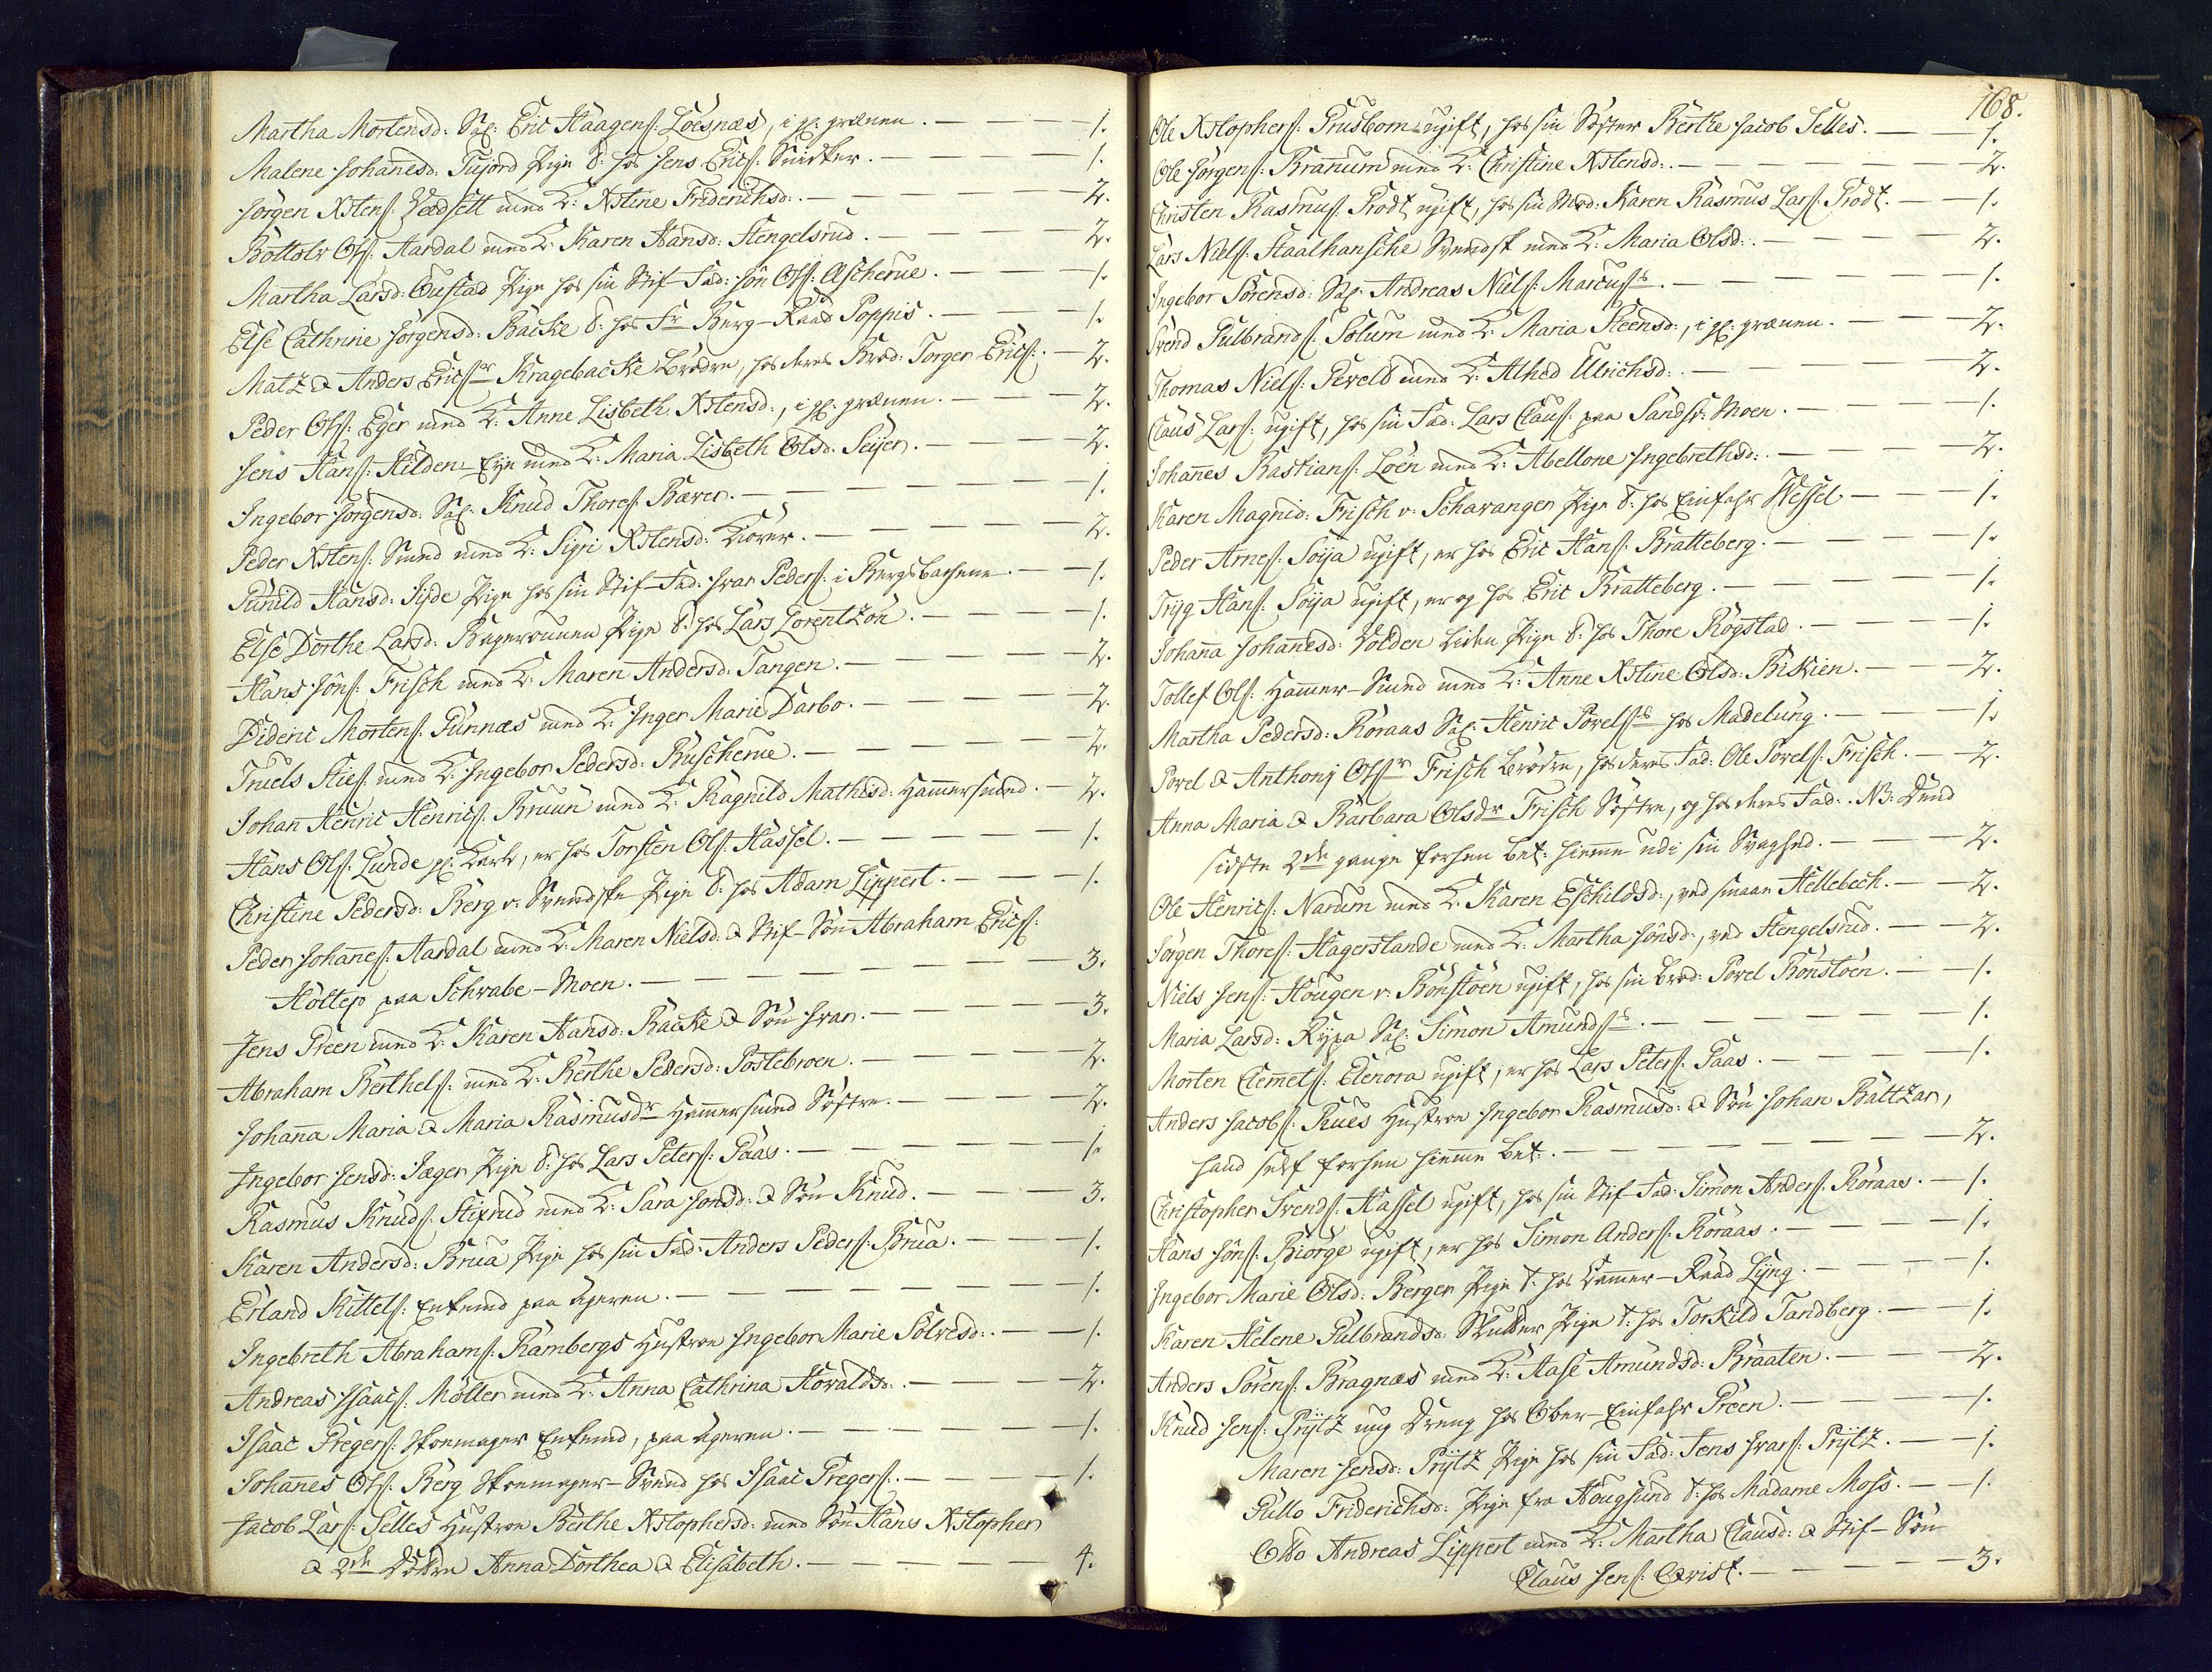 Martha Mortensd: Sal: Eric Haagens: Loesnæs, i gl: grænen. — 1.
Malene Johanesd: Tufjord Pige t: hos Jens Erics: Snidker. — 1.
Jørgen Xstens: Vedsett med K: Xstine Friderichsd:. — 2.
Bottolv Ols: Aardal med K: Karen Hansd: Hengelsrud. — 2.
Martha Larsd: Oustad Pige hos sin Stif-Fad: Jon Ols: Ascherue. — 1.
Else Cathrine Jørgensd: Backe t: hos Fr Berg-Raad Poppis. — 1.
Matz & Anders Ericsr Kragebacke Brødre, hos deres Brod: Torger Erics:. — 2.
Peder Ols: Eger med K: Anne Lisbeth Xstensd:, i gl: grænen. — 2.
Jens Hans: Hilden-Eye med K: Maria Lisbeth Olsd: Seyer. — 2.
Ingebor Jørgensd: Sal: Knud Thores: Bæver. — 1.
Peder Xstens: Smed med K: Sigri Xstensd: Kiørner. — 2.
Gunild Hansd: Jisde Pige hos sin Stif-Fad: Ivar Peders: i Bergsbachene. — 1.
Else Dorthe Larsd: Bagerovnen Pige t: hos Lars Lorentzøn. — 1.
Hans Jøns: Frisch med K: Maren Andersd: Tangen. — 2.
Dideric Mortens: Gunnæs med K: Inger Marie Darbo. — 2.
Truels Sties: med K: Ingebor Pedersd: Buscherue. — 2.
Johan Henric Henrics: Bruun med K: Ragnild Mathisd: Hamersmed. — 2.
Hans Ols: Lunde gl: Karl, er hos Torsten Ols: Hassel. — 1.
Christine Pedersd: Berg v: Svendske Pige t: hos Adam Lippert. — 1.
Peder Johanes: Aardal med K: Maren Nielsd: & Stif-Søn Abraham Erics:
Holtep paa Schwabe-Moen. — 3.
Jens Preen med K: Karen Hansd: Backe & Søn Ivar. — 3.
Abraham Berthels: med K: Berthe Pedersd: Postebroen. — 2.
Johanna Maria & Maria Rasmusdr Hamersmed Søstre. — 2.
Ingebor Jensd: Jæger Pige t: hos Lars Peters: Paas. — 1.
Rasmus Knuds: Stixrud med K: Sara Jonsd: & Søn Knud. — 3.
Karen Andersd: Brua Pige hos sin Fad: Anders Peders: Brua. — 1.
Erland Kittels: Enkemd paa Ageren. — 1.
Ingebreth Abrahams: Rambergs Hustroe Ingebor Marie Solvesd:. — 1.
Andreas Isaacs: Møller med K: Anna Cathrina Hovaldsd:. — 2.
Isaac Gregers: Skoemager Enkemd, paa Ageren. — 1.
Johanes Ols: Berg Skoemager-Svend hos Isaac Gregers:. — 1.
Jacob Lars: Selles Hustroe Berthe Xstophersd: med Søn Hans Xstopher
& 2de Døttre Anna Dorthea & Elisabeth. — 4.
168.
Ole Xstophers: Grusbom ugift, hos sin Søster Berthe Jacob Selles. — 1.
Ole Jørgens: Branum med K: Christine Xstensd:. — 2.
Christen Rasmus: Prodt ugift, hos sin Mod: Karen Rasmus Lars: Prodt. — 1.
Lars Niels: Staalhansche Svendsk med K: Maria Olsd:. — 2.
Ingebor Sørensd: Sal: Andreas Niels: Marcuss. — 1.
Svend Gulbrands: Solum med K: Maria Steensd:, i gl: grænen. — 2.
Thomas Niels: Peveld med K: Alhed Ulrichsd:. — 2.
Claus Lars: ugift, hos sin Fad: Lars Claus: paa Sandsv: Moen. — 1.
Johanes Bastians: Loen med K: Abellone Ingebrethsd:. — 2.
Karen Magnid: Frisch v: Schavangen Pige t: hos Einfahr Wessel — 1.
Peder Arnes: Soija ugift, er hos Eric Hans: Bratteberg. — 1.
Trijg Hans: Soija ugift, er og hos Eric Bratteberg. — 1.
Johanna Johanesd: Volden liden Pige t: hos Thore Rogstad. — 1.
Tollef Ols: Hamer-Smed med K: Anne Xstine Olsd: Biskien. — 2.
Martha Pedersd: Roraas Sal: Henric Povelss hos Madelung. — 1.
Povel & Anthonj Olsr Frisch Brødre, hos deres Fad: Ole Povels: Frisch. — 2.
Anna Maria & Barbara Olsdr Frisch Søstre, og hos deres Fad:. NB: Dend
sidste 2de gange forhen bet: hieme udi sin Svaghed. — 2.
Ole Henrics: Narum med K: Karen Eschildsd:, ved smaae Hellebech. — 2.
Jørgen Thores: Hagerstande med K: Martha Jonsd:, ved Hengelsrud. — 2.
Niels Jens: Hougen v: Bonstoen ugift, hos sin Brod: Povel Bonstoen. — 1.
Maria Larsd: Rypa Sal: Simon Amundss. — 1.
Morten Clemets: Elenora ugift, er hos Lars Peters: Paas. — 1.
Anders Jacobs: Rues Hustroe Ingebor Rasmusd: & Søn Johan Baltzar,
hand self forhen hieme bet:. — 2.
Christopher Svends: Hassel ugift, hos sin Stif-Fad: Simon Anders: Roraas. — 1.
Hans Jøns: Biorge ugift, er hos Simon Anders: Roraas. — 1.
Ingebor Marie Olsd: Berger Pige t: hos Kamer-Raad Lyng. — 1.
Karen Helene Gulbrandsd: Skudder Pige t: hos Torkild Tandberg. — 1.
Anders Sørens: Bragnæs med K: Aase Amundsd: Braaten. — 2.
Knud Jens: Prijtz ung Dreng hos Ober-Einfahr Preen. — 1.
Maren Jensd: Prijtz Pige hos sin Fad: Jens Ivars: Prijtz. — 1.
Gullo Friderichsd: Pige fra Hougsund t: hos Madame Moss. — 1.
Otto Andreas Lippert med K: Martha Clausd: & Stif-Søn
Claus Jens: Qvist. — 3.